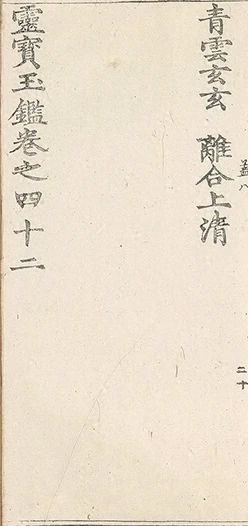 青雲玄玄　離合上清
盖八
二十
靈寳玉鑑卷之四十二